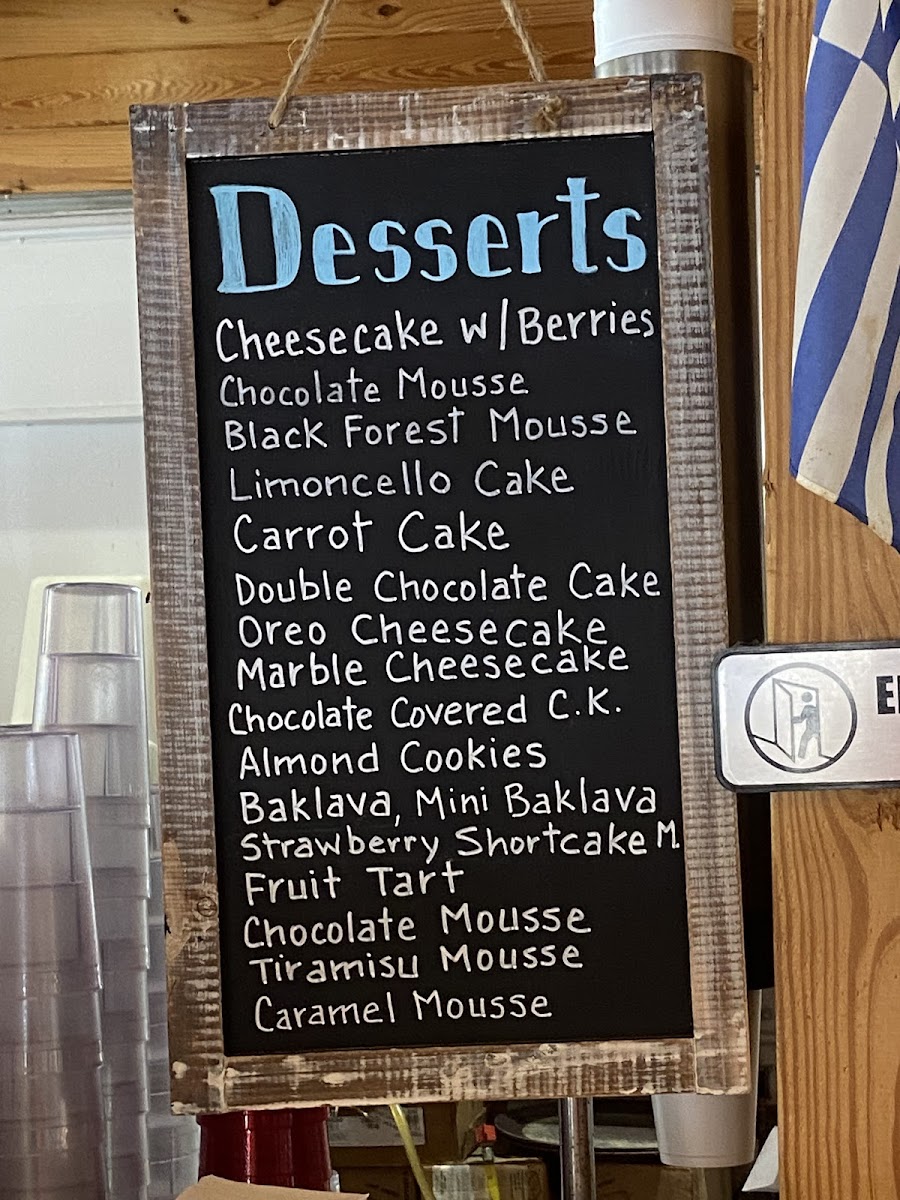 Desserts
Cheesecake w/Berries
Chocolate Mousse
Black Forest Mousse
Limoncello Cake
Carrot Cake
Double Chocolate Cake
Oreo Cheesecake
Marble Cheesecake
Chocolate Covered C.K.
Almond Cookies
Baklava, Mini Baklava
Strawberry Shortcake M.
Fruit Tart
Chocolate Mousse
Tiramisu Mousse
Caramel Mousse